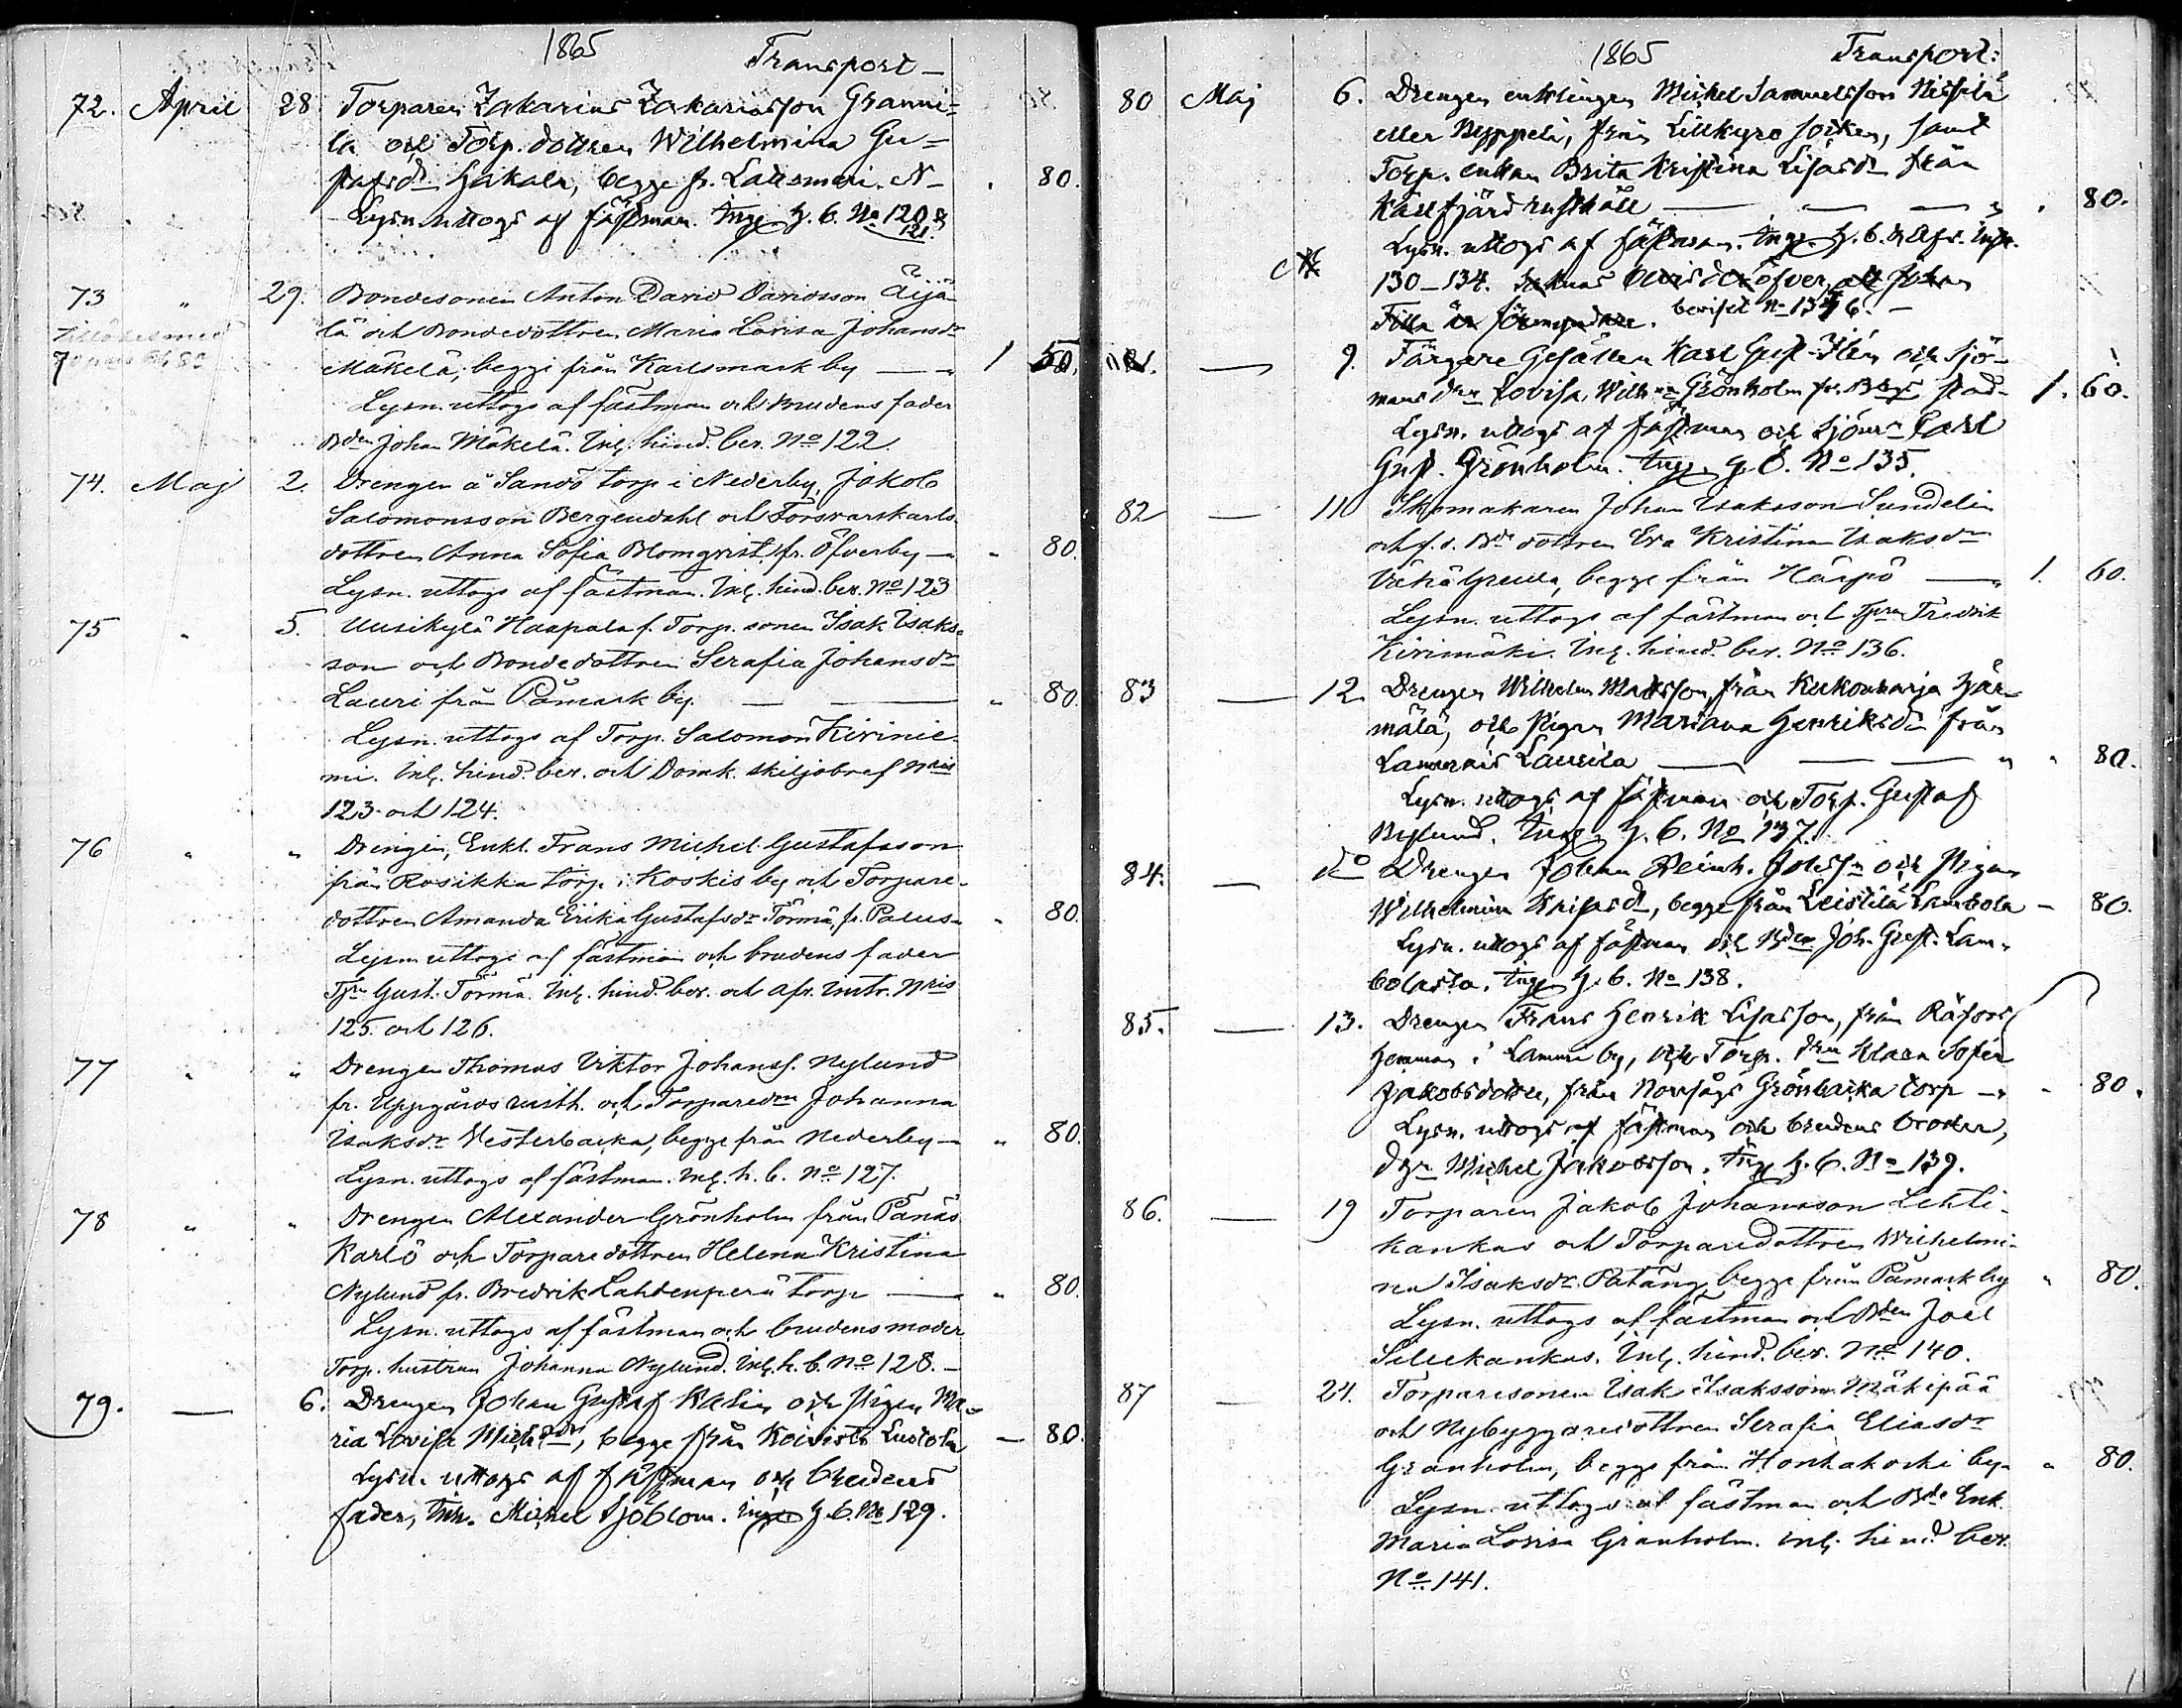 1865 Transport
72. April 28 Torparen Zakarias Zakariasson Granni-
la och Torp. dottren Wilhelmina Gu-
stafsdr Hakala, begge fr. Lassmari. 80.
Lysn. uttogs af fästman. Ing. h. b. No 120 & 121.
73 " 29. Bondesonen Anton David Davidsson Äijä-
lä och Bondedottren Maria Lovisa Johansdr
Mäkelä, begge från Karlsmark by — 1 50.
Lysn. uttogs af fästman och brudens fader
Bden Johan Mäkelä. Inl. hind. bev. No 122.
74. Maj 2. Drengen å Sandö torp i Nederby, Jakob
Salomonsson Bergendahl och Forsvarskarls
dottren Anna Sofia Blomqvist, fr. Öfverby — " 80.
Lysn. uttogs af fästman. Inl. hind. bev. No 123
75 " 5. Uusikylä Haapala f. Torp. sonen Isak Isaks-
son och Bondedottren Serafia Johansdr
Lauri från Påmark by. — " 80
Lysn. uttogs af Torp. Salomon Kivinie-
mi. Inl. hind. bev. och Domk. skiljobref Nris
123 och 124.
76 " " Drengen, Enkl. Frans Michel Gustafsson
från Rosikka torp i Koskis by och Torpare-
dottren Amanda Erika Gustafsdr Törmä, fr. Palus — " 80.
Lysn. uttogs af fästman och brudens fader
Tprn Gust. Törmä. Inl. hind. bev. och afv. instr. Nris
125 och 126.
77 " " Drengen Thomas Viktor Johanss. Nylund
fr. Uppgårds rusth. och Torparedrn Johanna
Isaksdr Vesterbacka, begge från Nederby — " 80.
Lysn. uttogs af fästman. Inl. h. b. No 127.
78 " " Drengen Alexander Grönholm från Panäs
Karlö och Torparedottren Helena Kristina
Nylund fr. Bredvik Lahdenperä torp — " 80.
Lysn. uttogs af fästman och brudens moder
Torp. hustrun Johanna Nylund. Inl. h. b. No 128. —
79. — 6. Drengen Johan Gustaf Kalin och Pigan Ma-
ria Lovisa Michsdr, begge från Koivisto Luotola — 80.
Lysn. uttogs af fästman och brudens
fader, Inh. Michel Sjöblom. Ing. h. b. No 129.
1865 Transport:
80 Maj 6. Drengen enklingen Michel Samuelsson Nissilä
eller Nyppeli, från Lillkyro socken, samt
Torp. enkan Brita Kristina Lisasdr från
Kasfjärd rusthåll — 80.
Lysn. uttogs af fästman. Ing. h. b. & Afv. Instr.
130–134. Saknas bevis deröfver, att Johan
Filla är förmyndare. beviset No 136. —
— 9. Färgare Gesällen Karl Gust. Flén och Sjö-
mans drn Lovisa Wilhna Grönholm fr. Bbgs stad — 1. 60.
Lysn. uttogs af fästman och Sjömn Carl
Gust. Grönholm. Ing. h. b. No 135.
82 — 11 Skomakaren Johan Isaksson Sundelin
och f. d. Bde dottren Eva Kristina Isaksdr
Vähä Greula, begge från Härpö — 1. 60.
Lysn. uttogs af fästman och Tprn Fredrik
Kivimäki. Inl. hind. bev. No 136.
83 — 12. Drengen Wilhelm Mattsson, från Kukonharja Här-
mälä, och Pigan Mariana Henriksdr från
Lammais Laurila — " 80.
Lysn. uttogs af fästman och Torp. Gustaf
Nylund. Ing. h. b. No 137.
84. — do Drengen Johan Reinh. Johssn och Pigan
Wilhelmina Kaisasdr, begge från Leistilä Lambola — 80.
Lysn. uttogs af fästman och Bden Joh. Gust. Lam-
bolasta. Ing. h. b. No 138.
85. — 13. Drengen Frans Henrik Lisasson, från Räfsos
hemman i Lammi by, och Torp. drn Klara Sofia
Jakobsdotter, från Norrfågs Grönbacka torp — " 80.
Lysn. uttogs af fästman och brudens broder,
Dgn Michel Jakobsson. Ing. h. b. No 139.
86. — 19 Torparen Jakob Johansson Lehti-
kankas och Torparedottren Wilhelmi-
na Isaksdr Patäng, begge från Påmark by " 80.
Lysn. uttogs af fästman och Bden Joel
Sillikankas. Inl. hind. bev. No 140.
87 — 24. Torparesonen Isak Isaksson Mäkipää
och Nybyggaredottren Serafia Eliasdr
Granholm, begge från Honkakoski by — " 80.
Lysn. uttogs af fästman och Bde Enk.
Maria Lovisa Granholm. Inl. hind. bev.
No 141.